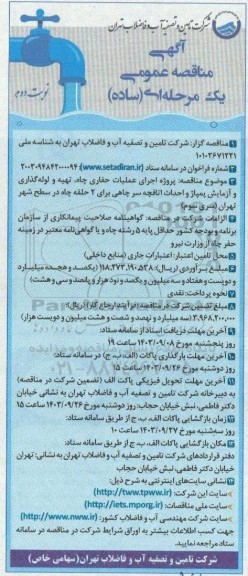 شرکت تامین و تصفیه آب و فاضلاب تهران
آگهی
مناقصه عمومی
یک مرحله‌ای (ساده)
نوبت دوم
مناقصه گزار: شرکت تامین و تصفیه آب و فاضلاب تهران به شناسه ملی
۱۰۱۰۲۶۷۱۲۲۱
شماره فراخوان در سامانه ستاد (www.setadiran.ir):
موضوع مناقصه: پروژه اجرای عملیات حفاری چاه، تهیه و لوله‌گذاری
و آزمایش پمپاژ و احداث اتاقچه سر چاهی برای ۲ حلقه چاه در سطح شهر
تهران (سری سوم)
الزامات شرکت در مناقصه: گواهینامه صلاحیت پیمانکاری از سازمان
برنامه و بودجه کشور حداقل پایه ۵ رشته چاه و یا گواهی‌نامه معتبر در زمینه
حفر چاه از وزارت نیرو
محل تامین اعتبار: اعتبارات جاری (منابع داخلی)
مبلغ برآوردی (ریال): ۱۱۸,۲۷۳,۱۹۰,۵۳۸ (یکصد و هجده میلیارد
و دویست و هفتاد و سه میلیون و یکصد و نود هزار و پانصد و سی و هشت)
نحوه پرداخت: نقدی
مبلغ تضمین شرکت در مناقصه (فرآیند ارجاع کار) (ریال):
۳,۹۶۸,۲۰۰,۰۰۰ (سه میلیارد و نهصد و شصت و هشت میلیون و دویست هزار)
آخرین مهلت دریافت اسناد از سامانه ستاد:
روز پنجشنبه مورخ ۱۴۰۳/۰۹/۰۸ ساعت ۱۹
آخرین مهلت بارگذاری پاکات (الف، ب، ج) در سامانه ستاد:
روز دوشنبه مورخ ۱۴۰۳/۰۹/۲۶ ساعت ۱۵
آخرین مهلت تحویل فیزیکی پاکت الف (تضمین شرکت در مناقصه)
به دبیرخانه شرکت تامین و تصفیه آب و فاضلاب تهران به نشانی خیابان
دکتر فاطمی، نبش خیابان حجاب: روز دوشنبه مورخ ۱۴۰۳/۰۹/۲۶ ساعت ۱۵
زمان بازگشایی پاکات الف، ب، ج از طریق سامانه ستاد:
روز سه‌شنبه مورخ ۱۴۰۳/۰۹/۲۷ ساعت ۱۰
مکان بازگشایی پاکات الف، ب، ج از طریق سامانه ستاد:
دفتر قراردادهای شرکت تامین و تصفیه آب و فاضلاب تهران به نشانی: تهران
خیابان دکتر فاطمی، نبش خیابان حجاب
نشانی سایت‌های اینترنتی به شرح ذیل:
سایت این شرکت: (http://tww.tpww.ir)
سایت ملی مناقصات: (http://iets.mporg.ir)
سایت شرکت مهندسی آب و فاضلاب کشور: (http://www.nww.ir)
جهت کسب اطلاعات بیشتر به اوراق شرایط شرکت در مناقصه در سامانه
ستاد مراجعه نمایید.
شرکت تامین و تصفیه آب و فاضلاب تهران (سهامی خاص)